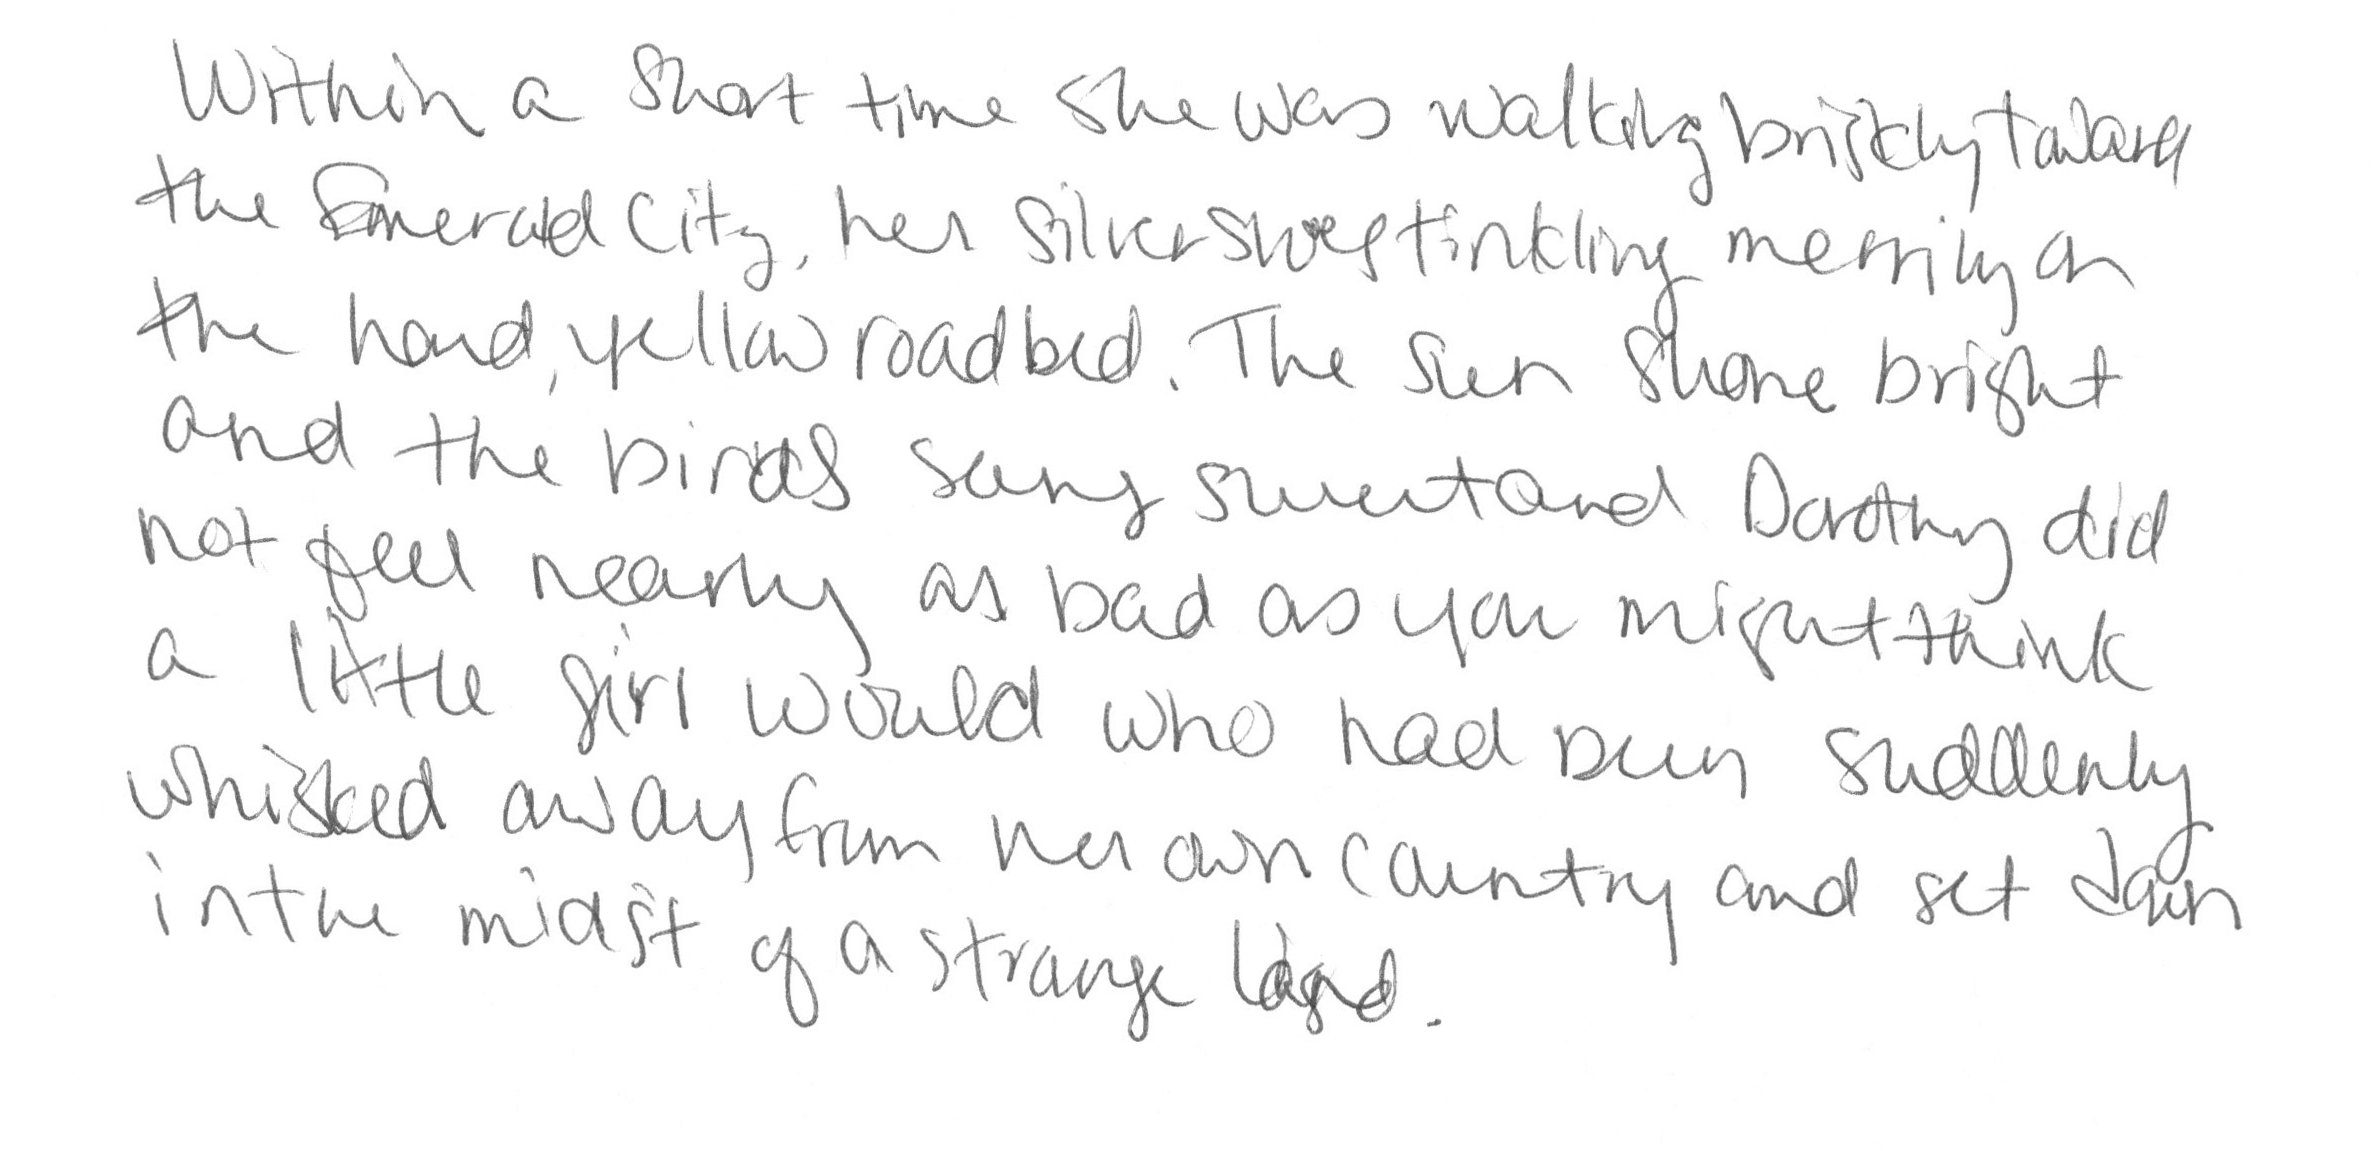 Within a short time she was walking briskly toward
the Emerald City, her silver shoes tinkling merrily on
the hard, yellow roadbed. The sun shone bright
and the birds sang sweet and Dorothy did
not feel nearly as bad as you might think
a little girl would who had been suddenly
whisked away from her own country and set down
in the midst of a strange land.